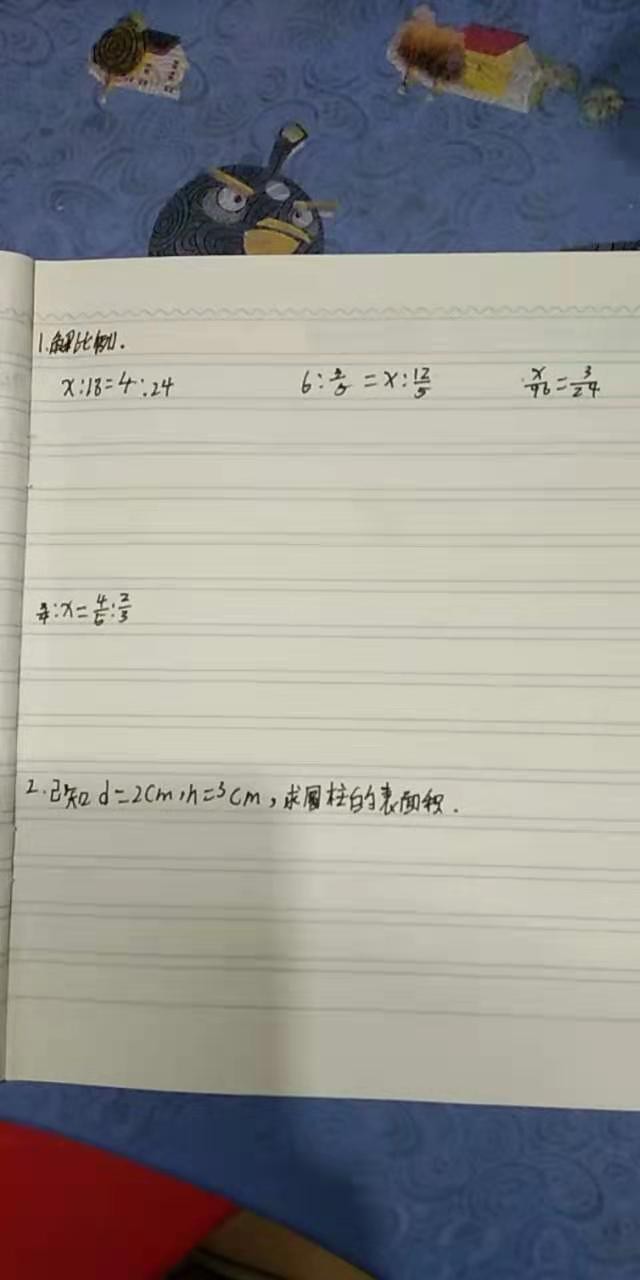 1.解比例.
x:18=4:24 6:2/5=x:12/5 x/96=3/24
:x=4/5:2/3
2.已知d=2cm,h=3cm,求圆柱的表面积.